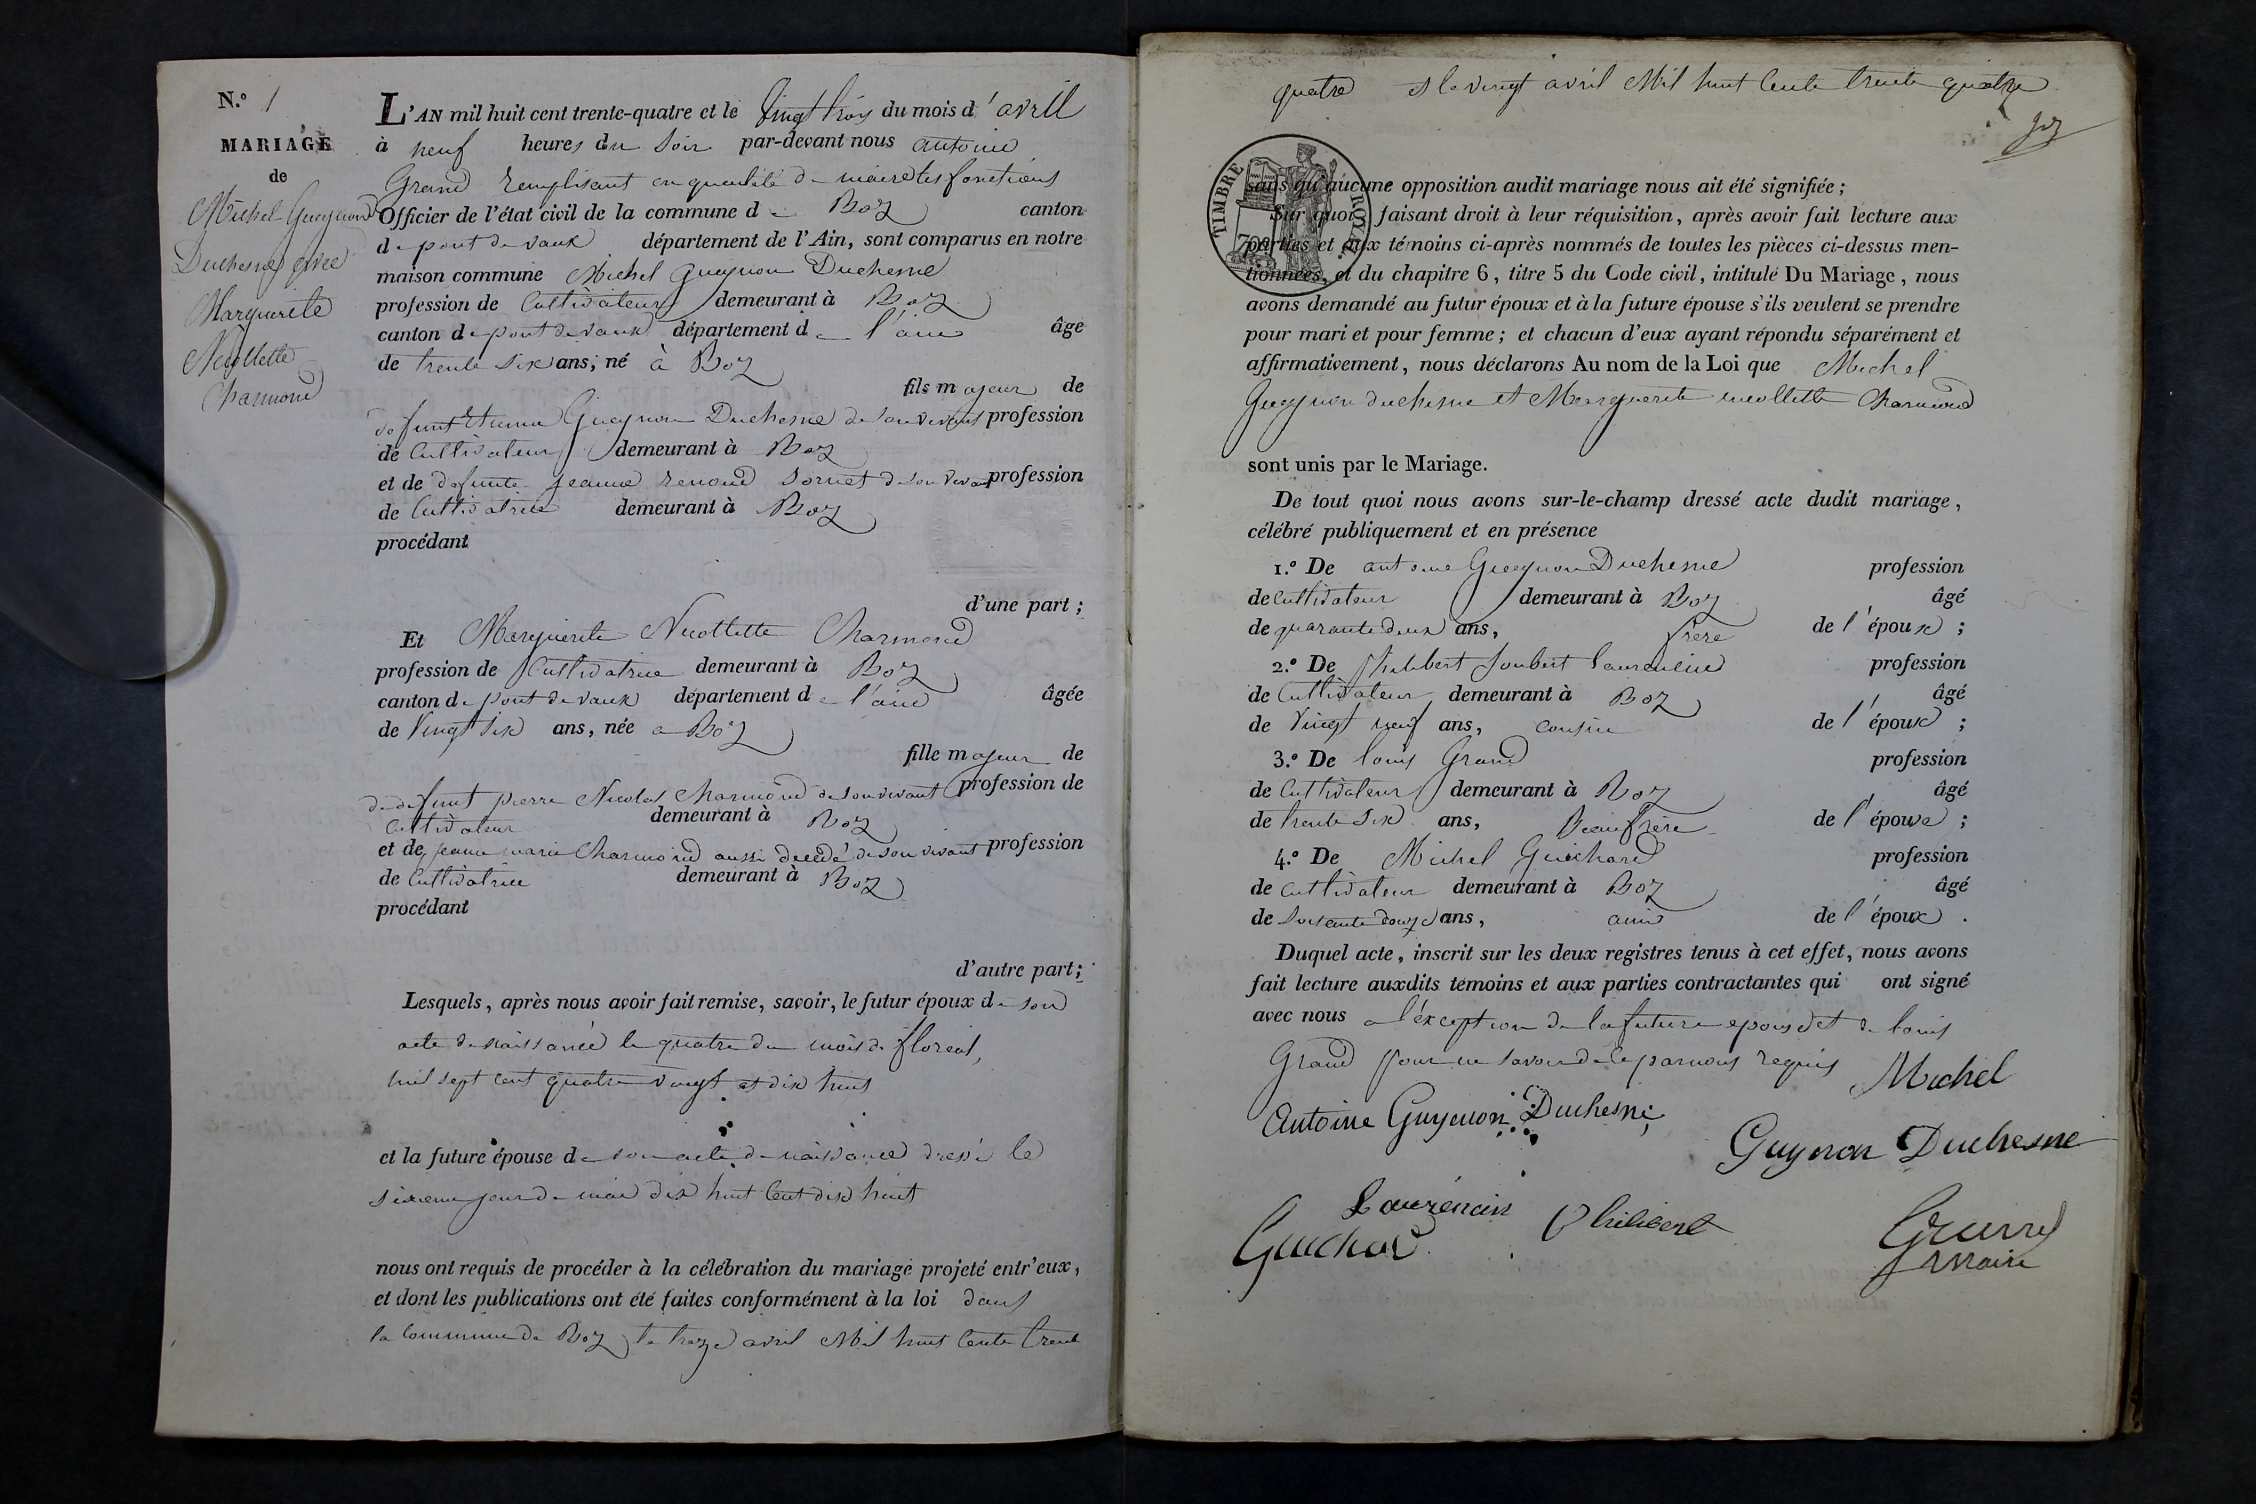 N.º 1
MARIAGE
de
Michel Gueynon
Duchesne avec
Marguerite
Nicollette
Charmond
L'AN mil huit cent trente-quatre et le vingt trois du mois d'avril
à neuf heures du soir par-devant nous antoine
Grand remplisant en quealité de maire les fonctions
Officier de l'état civil de la commune de Boz canton
de pont de vaux département de l'Ain, sont comparus en notre
maison commune Michel Gueynon Duchesne
profession de Cultivateur demeurant à Boz
canton de pont de vaux département de l'ain âge
de trente six ans, né à Boz
fils majeur de
defunt Gueynon Duchesne de son vivant profession
de Cultivateur demeurant à Boz
et de defunte jeanne renoud Sornet de son vivant profession
de Cultivatrice demeurant à Boz
procédant
d'une part;
Et Marguerite Nicollette Charmond
profession de Cultivatrice demeurant à Boz
canton de pont de vaux département de l'ain âgée
de vingt six ans, née a Boz
fille majeur de
de defunt pierre Nicolas Charmond de son vivant profession de
Cultivateur demeurant à Boz
et de jeanne marie Charmond aussi decedé de son vivant profession
de Cultivatrice demeurant à Boz
procédant
d'autre part;
Lesquels, après nous avoir fait remise, savoir, le futur époux de son
acte de naissance le quatre du mois de floreal,
mil sept cent quatre vingt et dix huit
et la future épouse de son acte de naissance dressé le
sixieme jour de mai dix huit Cent dix huit
nous ont requis de procéder à la célébration du mariage projeté entr'eux,
et dont les publications ont été faites conformément à la loi dans
la Commune de Boz le treize avril Mil huit Cente trente
quatre et le vingt avril Mil huit Cente trente quatre
TIMBRE ROYAL
70
sans qu'aucune opposition audit mariage nous ait été signifiée;
Sur quoi, faisant droit à leur réquisition, après avoir fait lecture aux
parties et aux témoins ci-après nommés de toutes les pièces ci-dessus men-
tionnées, et du chapitre 6, titre 5 du Code civil, intitulé Du Mariage, nous
avons demandé au futur époux et à la future épouse s'ils veulent se prendre
pour mari et pour femme; et chacun d'eux ayant répondu séparément et
affirmativement, nous déclarons Au nom de la Loi que Michel
Gueynon duchesne et Marguerite nicollette Charmond
sont unis par le Mariage.
De tout quoi nous avons sur-le-champ dressé acte dudit mariage,
célébré publiquement et en présence
1.º De antoine Gueynon Duchesne profession
de Cultivateur demeurant à Boz âgé
de quarante deux ans, frere de l'époux;
2.º De philibert Joubert Laurencin profession
de Cultivateur demeurant à Boz âgé
de vingt neuf ans, cousin de l'épouse;
3.º De louis Grand profession
de Cultivateur demeurant à Boz âgé
de trente six ans, Beaufrère de l'épouse;
4.º De Michel Guichard profession
de cultivateur demeurant à Boz âgé
de soixante douze ans, ami de l'époux.
Duquel acte, inscrit sur les deux registres tenus à cet effet, nous avons
fait lecture auxdits témoins et aux parties contractantes qui ont signé
avec nous a l'exception de la future epouse et de louis
Grand pour ne savoir de ce par nous requis Michel
Antoine Guyenon Duchesne
Guynon Duchesne
Laurencin Philibert
Guichard
Grand
maire